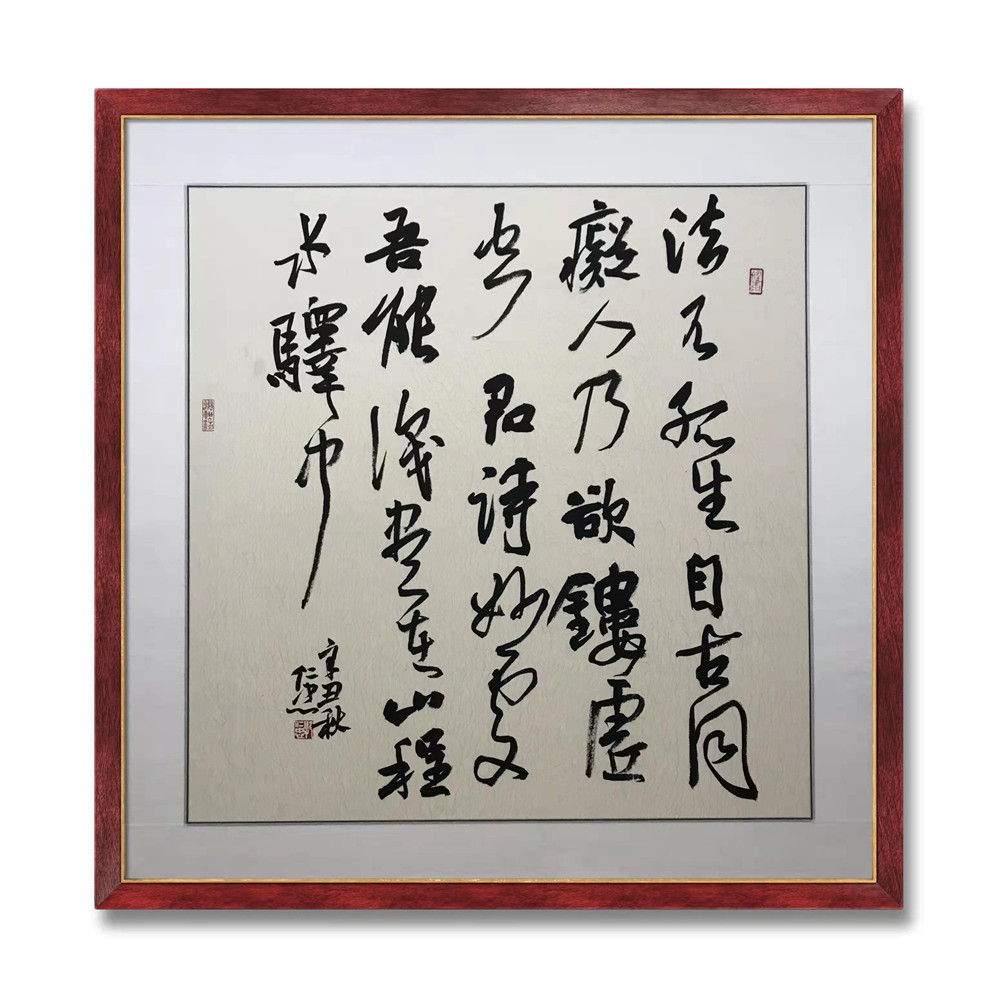 法不孤生自古同
癡人乃欲鏤虛
空君詩妙處
吾能識盡在山程
水驛中
辛丑秋
仁